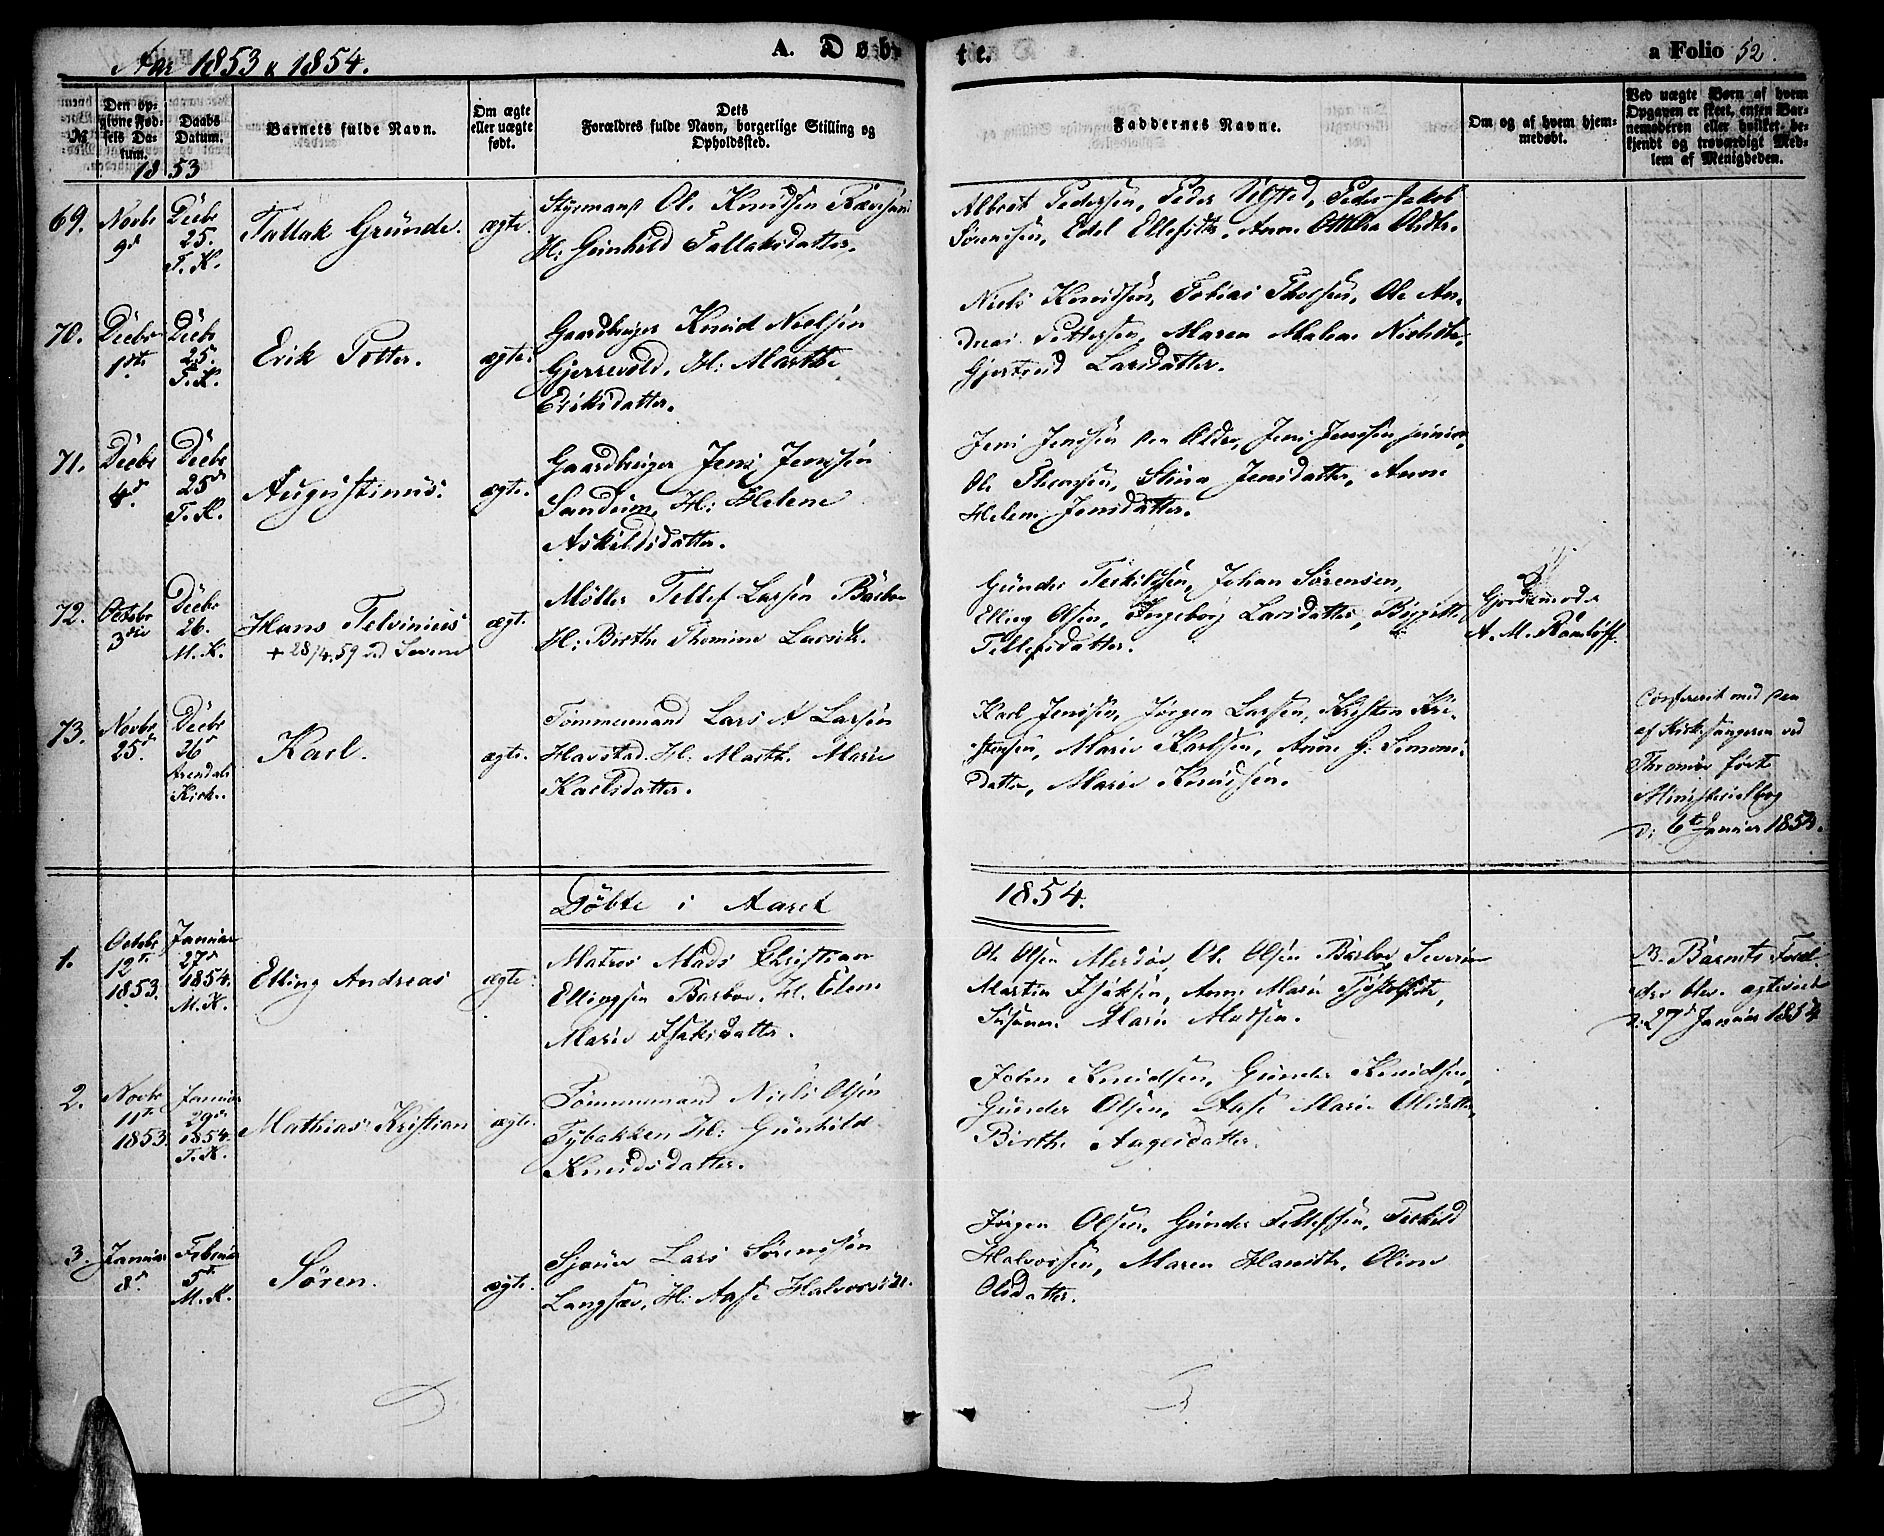 Aar 1853 & 1854.
A. Døbte.
a Folio 52.
№
Den opgivne Fødsels Datum.
Daabs Datum.
Barnets fulde Navn.
Om ægte eller uægte født.
Dets Forældres fulde Navn, borgerlige Stilling og Opholdssted.
Faddernes Navne.
Om og af hvem hjemmedøbt.
Ved uægte Børn af hvem Opgaven er skeet, enten Barnemoderen eller hvilket bekjendt og troværdigt Medlem af Menigheden.
1853
69. Novbr 9d
Decbr 25. T. K.
Tallak Gründe.
ægte.
Styrmand Ole Knudsen
H: Gunhild Tallaksdatter.
Albret Pedersen, Peder Ugsted, Peder Jakob
Sørensen, Edel Ellefsdtr, Anne Olsdtr.
70. Decbr 1ste
Decbr 25. T. K.
Erik Potter.
ægte.
Gaardbruger Knud Nielsen
Gjerrevold. H: Marthe
Eriksdatter.
Niels Knudsen, Tobias Thorsen, Ole An-
dreas Pettersen, Maren Malene Nielsdtr,
Gjertrud Larsdatter.
71. Decbr 4d
Decbr 25d T. K.
Augustinus.
ægte.
Gaardbruger Jens Jenssen
Sandum, H: Helene
Askildsdatter.
Jens Jenssen den Ældre, Jens Jenssen junior,
Ole Thorsen, Stina Jensdatter, Anne
Helene Jensdatter.
72. Octobr 3die
Decbr 26. M. K.
Hans Telvinius
+ 28/4.59 ad Severn
ægt.
Møller Tellef Larsen Barbo
H: Birthe Thomine Larsdtr.
Gunder Terkildsen, Johan Sørensen,
Elling Olsen, Ingeborg Larsdatter, Birgitte
Tellefsdatter.
Gjordemoder
A. M. Romløff.
73. Novbr 25d
Decbr 26d Arendals Kirke.
Karl.
ægte.
Tømmermand Lars A Larsen
Havstad. H: Marth. Marie
Karlsdatter.
Karl Jensen, Jørgen Larsen, Kristen Kri-
stensen, Marie Karlsen, Anne G. Simons-
datter, Marie Knudsen.
Confereret med den
af Kirkesangeren ved
Thromø førte
Ministerialbog
d: 6te Januar 1854.
Döbte i Aaret 1854.
1. Octobr 12te 1853.
Januar 27d 1854. M. K.
Elling Andreas
ægte.
Matros Mads Christian
Ellingsen Barbo. H. Elen
Marie Isaksdatter.
Ole Olsen Merdøe, Ole Olsen Barbo, Severin
Martin Isaksen, Anne Marie
Susanne Marie Madsen.
B. Barnets Foræl-
dre blev ægteviet
d: 27d Januar 1854
2. Novbr 11te 1853.
Januar 29d 1854. T. K.
Mathias Kristian
ægte.
Tømmermand Niels Olsen
Tybakken H: Gunhild
Knudsdatter.
John Knudsen, Gunder Knudsen,
Gunder Olsen, Aase Marie Olsdatter,
Birthe Aagesdatter.
3. Januar 8d
Februar 5te M. K.
Søren.
ægte.
Sjømd Lars Sørensen
Langsæv, H: Aase Halvorsdtr.
Jørgen Olsen, Gunder Tellefsen, Terkild
Halvorsen, Maren Hansdtr, Oline
Olsdatter.